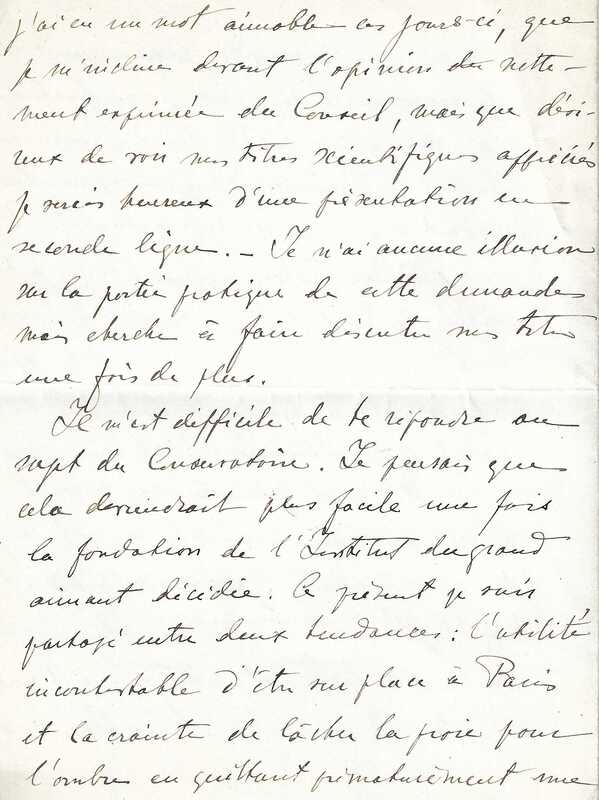 j'ai eu un mot aimable ces jours-ci, que
je m'incline devant l'opinion du nette-
ment exprimée du Conseil, mais que dési-
reux de voir mes titres scientifiques affichés
je serais heureux d'une présentation en
seconde ligne. — Je n'ai aucune illusion
sur la portée pratique de cette demande
mais cherche à faire discuter mes titres
une fois de plus.
Il m'est difficile de te répondre au
sujet du Conservatoire. Je pensais que
cela deviendrait plus facile une fois
la fondation de l'Institut du grand
aimant décidée. Ce présent je suis
partagé entre deux tendances : l'utilité
incontestable d'être sur place à Paris
et la crainte de lâcher la proie pour
l'ombre en quittant prématurément une